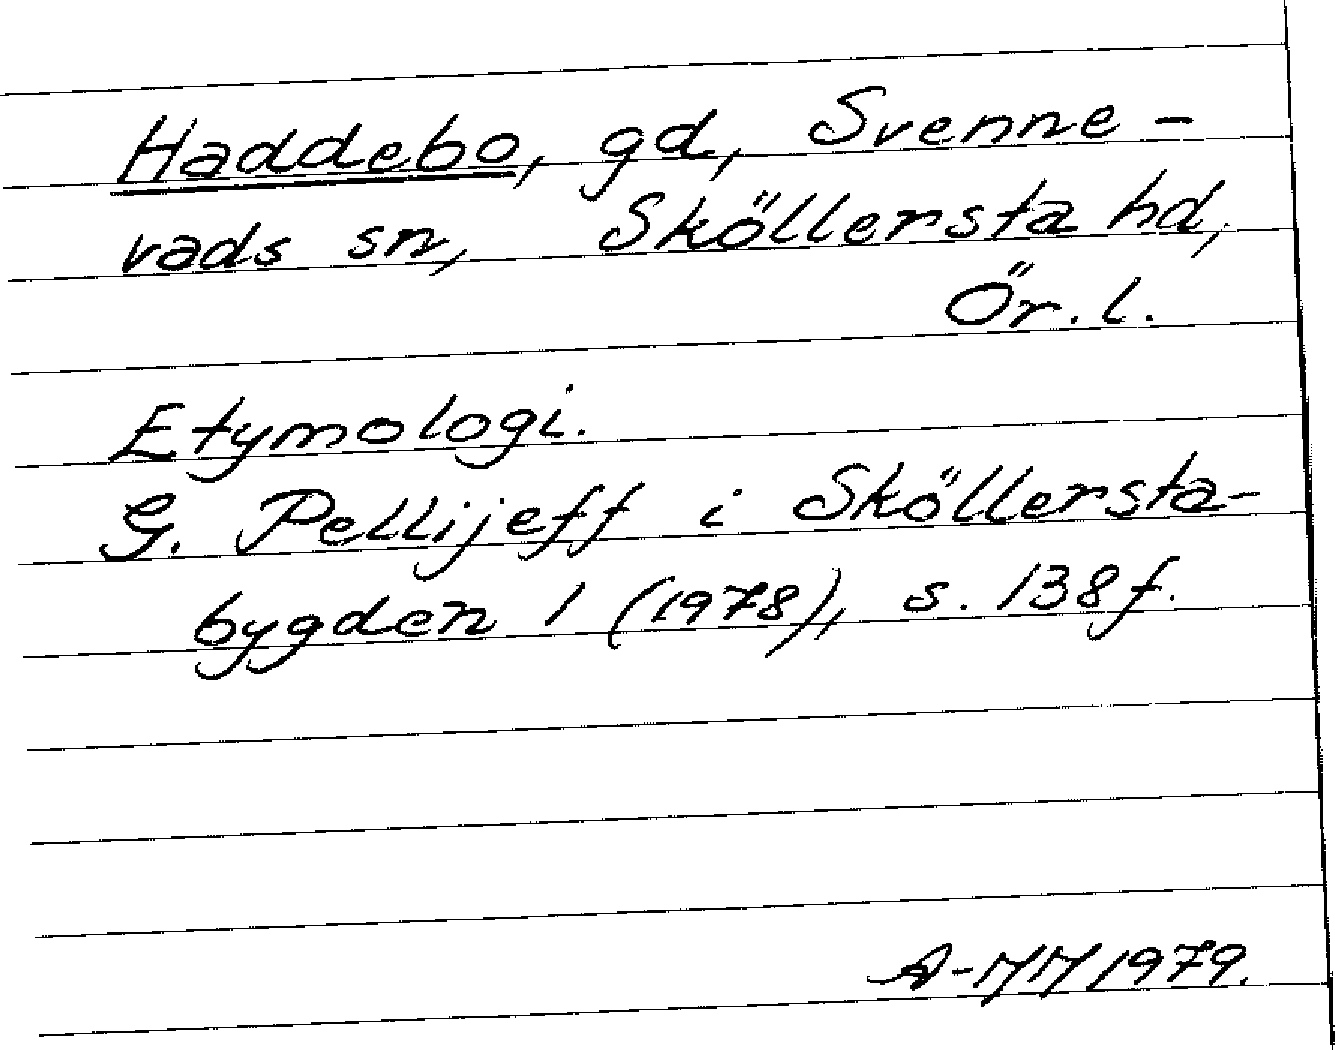 Haddebo, gd, Svenne-
vads sn, Sköllersta hd,
Ör. l.
Etymologi.
G. Pellijeff i Sköllersta-
bygden 1 (1978), s. 138 f.
A-MM 1979.